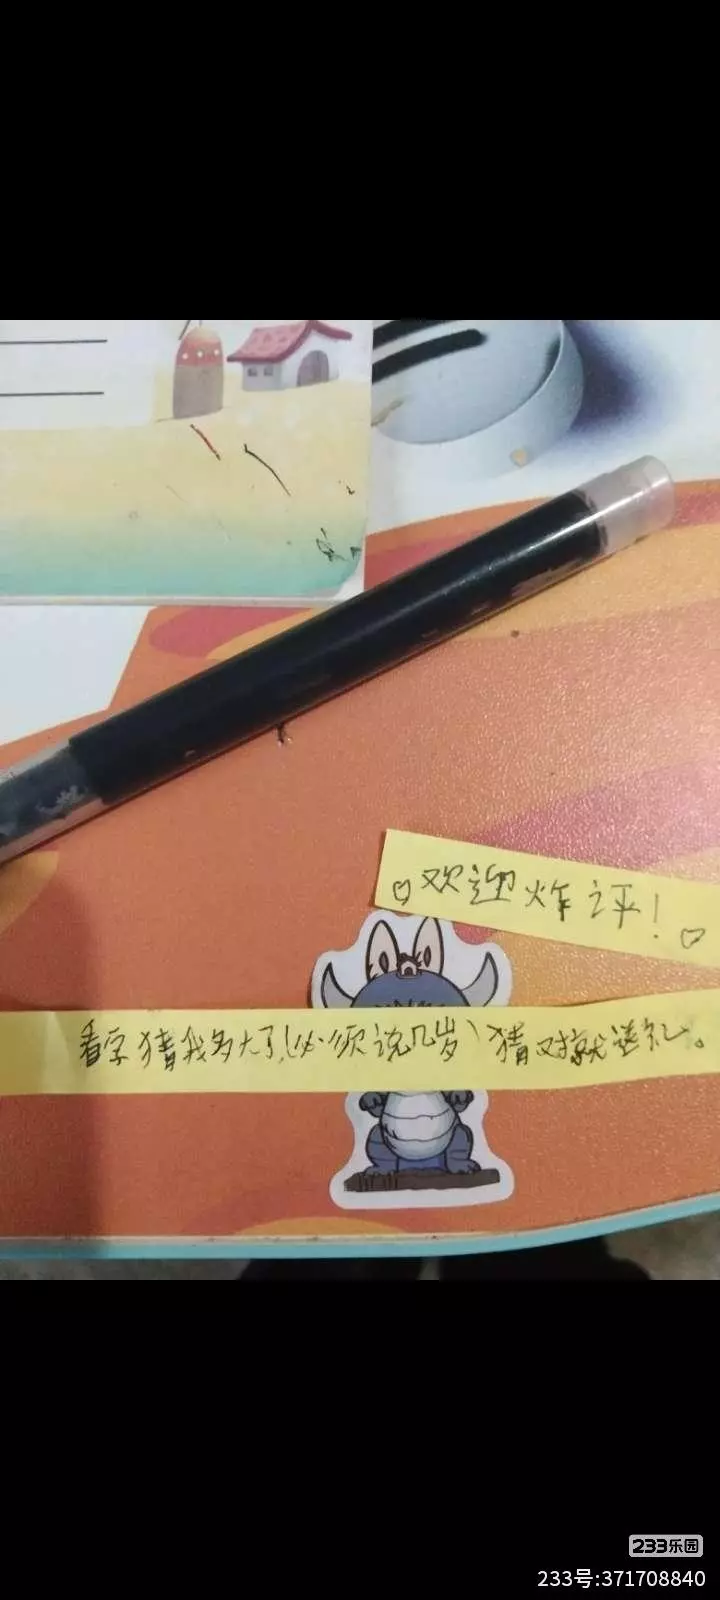 欢迎炸评!
看字猜我多大了(必须说几岁)猜对就送礼。
233乐园
233号:371708840